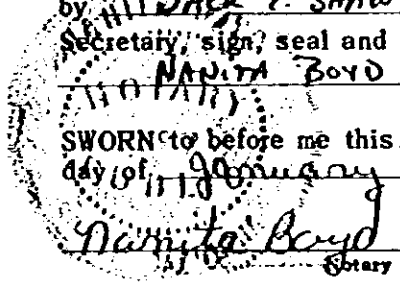 by
Secretary, sign, seal and
NANITA BOYD
NOTARY
SWORN to before me this
day of January
Nanita Boyd
Notary